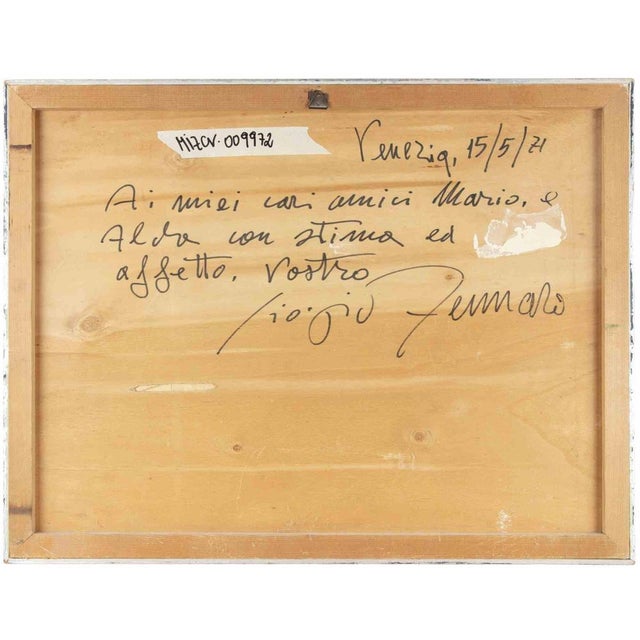 MI7CV-009972
Venezia, 15/5/71
Ai miei cari amici Mario, e
Alda con stima ed
affetto, Vostro
Giorgio